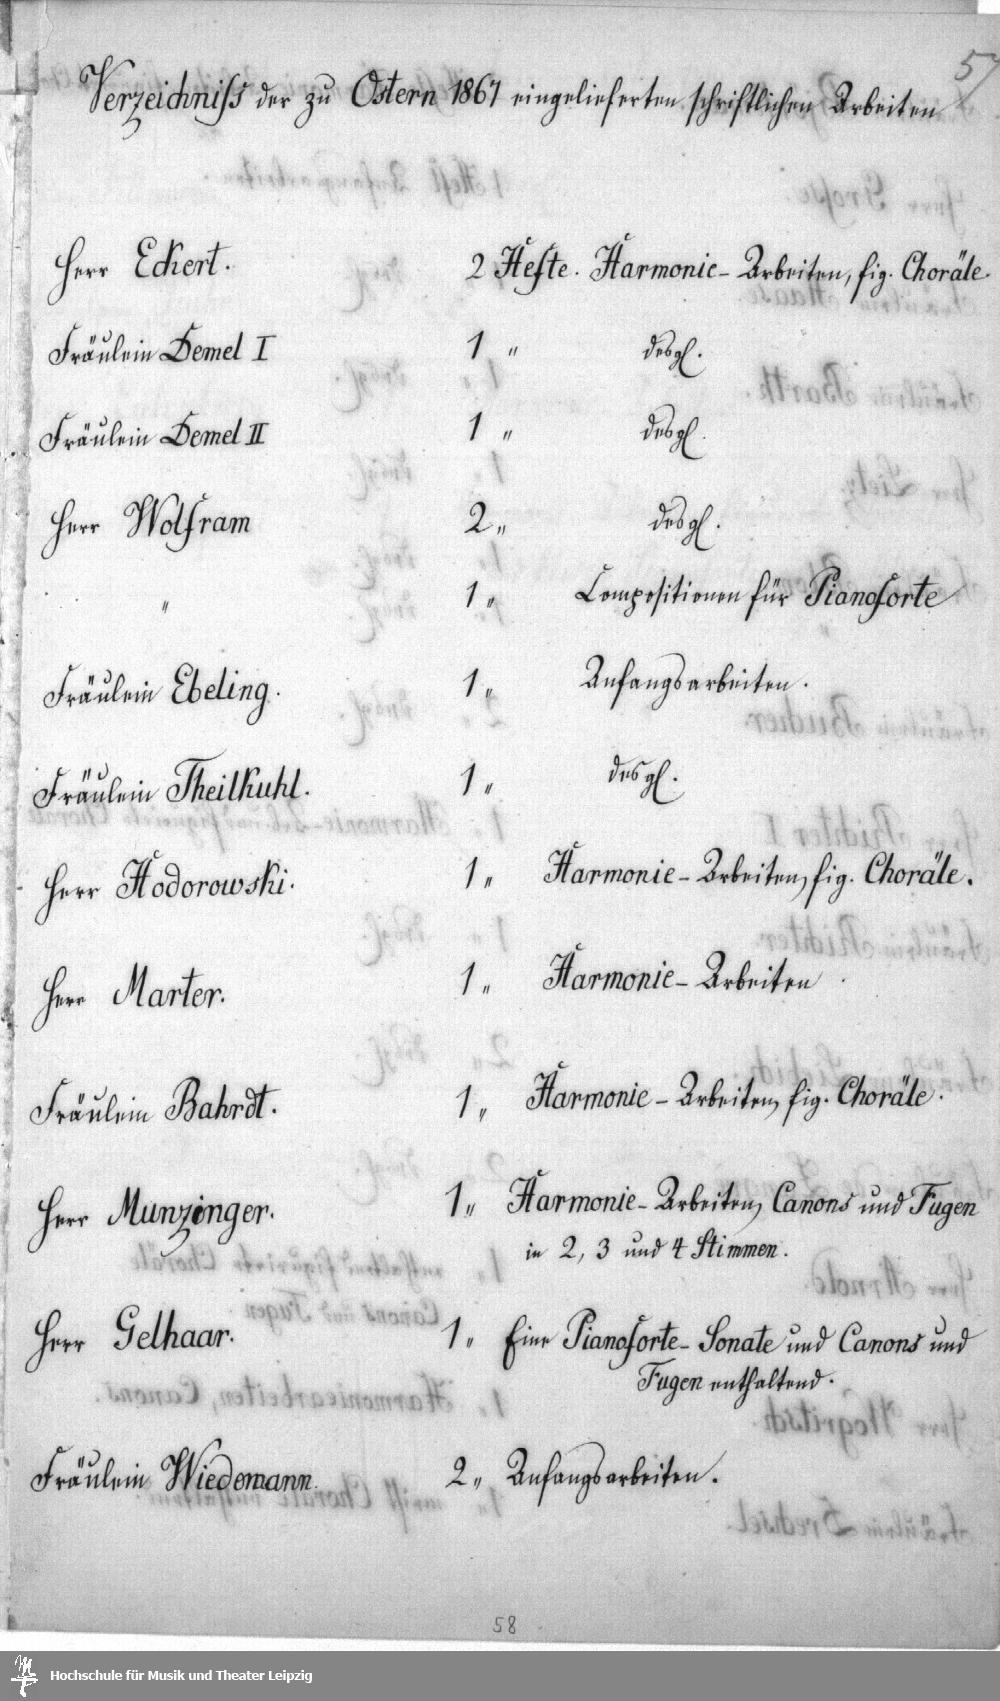 57
Verzeichniss der zu Ostern 1867 eingelieferten schriftlichen Arbeiten
Herr Eckert. 2 Hefte. Harmonie-Arbeiten, fig. Choräle.
Fräulein Demel I 1 " desgl.
Fräulein Demel II 1 " desgl.
Herr Wolfram 2 " desgl.
" 1 " Compositionen für Pianoforte
Fräulein Ebeling. 1 " Anfangsarbeiten.
Fräulein Theilkuhl. 1 " desgl.
Herr Hodorowski. 1 " Harmonie-Arbeiten, fig. Choräle.
Herr Marter. 1 " Harmonie-Arbeiten
Fräulein Bahrdt. 1 " Harmonie-Arbeiten, fig. Choräle.
Herr Munzinger. 1 " Harmonie-Arbeiten, Canons und Fugen
in 2, 3 und 4 Stimmen.
Herr Gelhaar. 1 " Eine Pianoforte-Sonate und Canons und
Fugen enthaltend.
Fräulein Wiedemann. 2 " Anfangsarbeiten.
58
Hochschule für Musik und Theater Leipzig